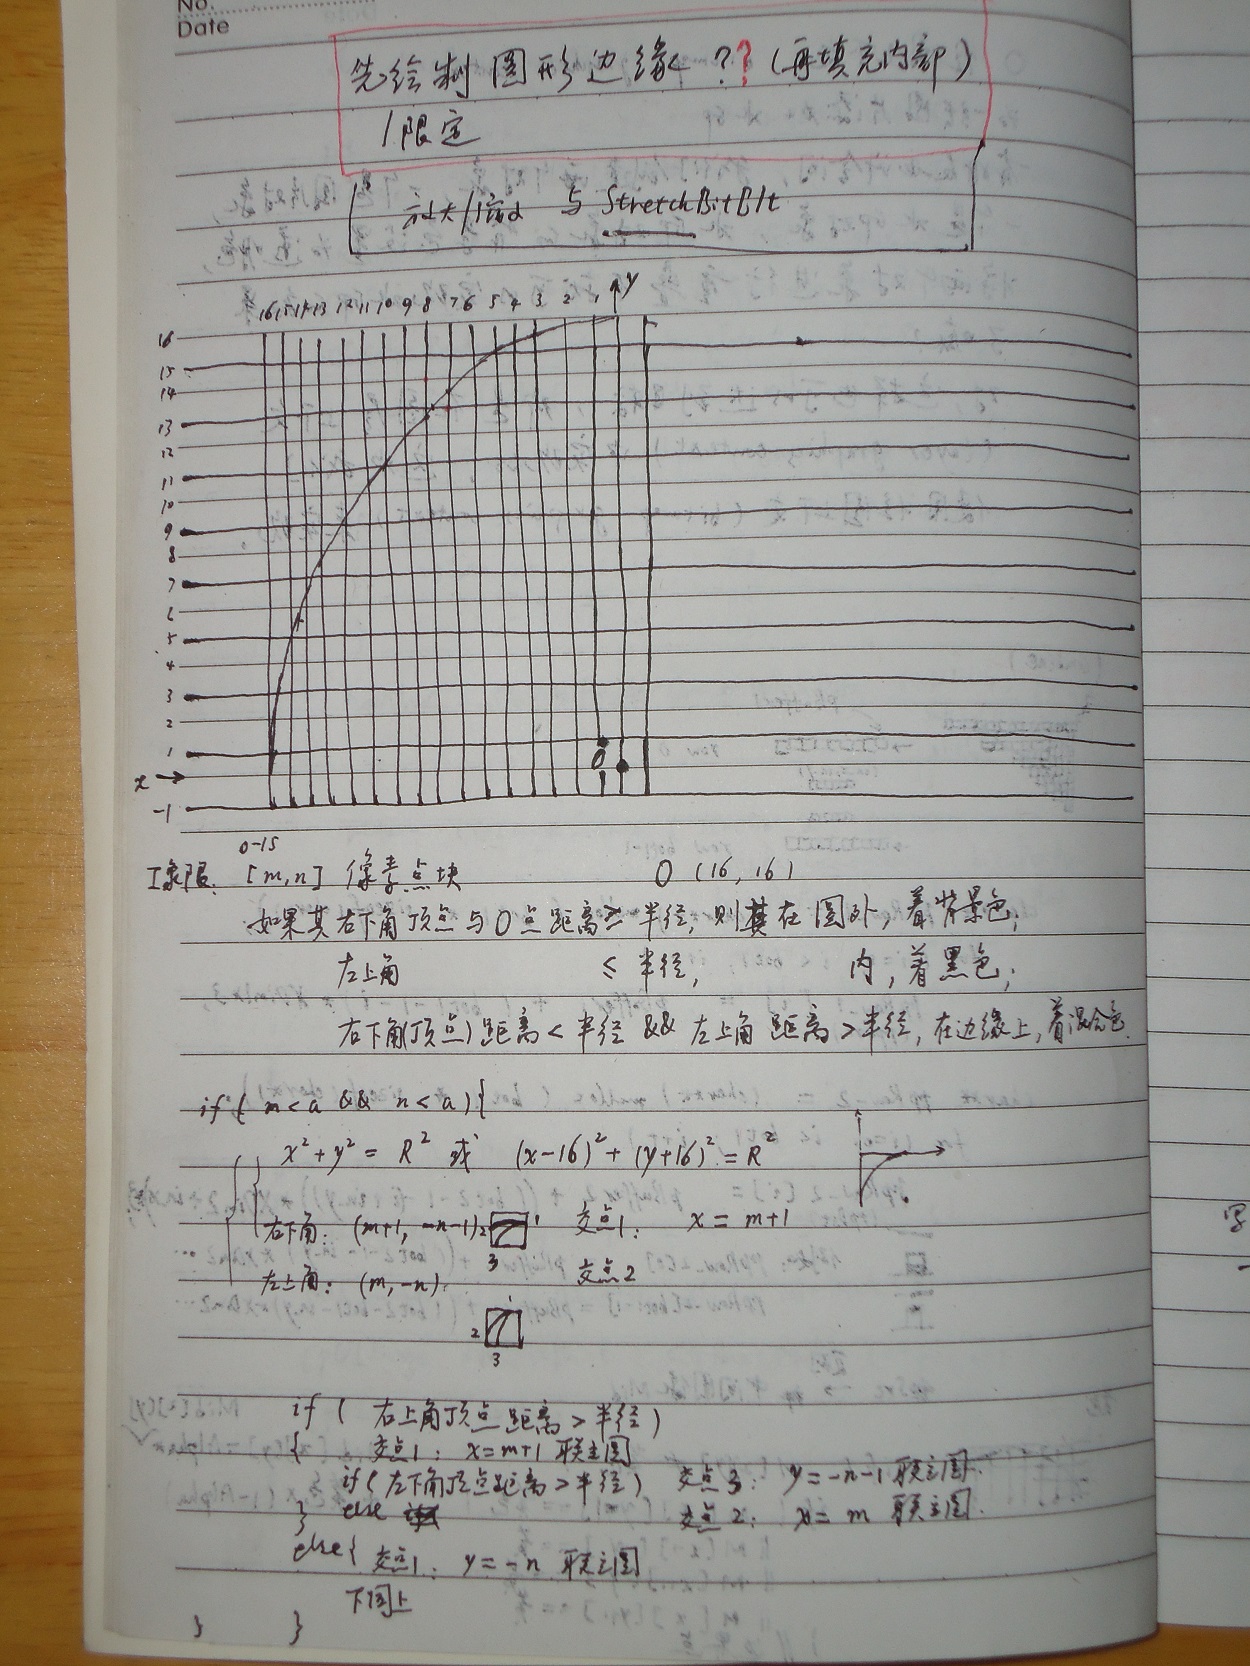 No.
Date
先绘制图形边缘??(再填充内部)
限定
放大1倍 与 StretchBitBlt
16 15 14 13 12 11 10 9 8 7 6 5 4 3 2 1 y
16
15
14
13
12
11
10
9
8
7
6
5
4
3
2
1
x
-1
O
0-15
I象限: [m,n] 像素点块 O (16, 16)
如果其右下角顶点与O点距离≥半径,则其在圆外,着背景色;
左上角 ≤ 半径, 内,着黑色;
右下角(顶点)距离<半径 && 左上角距离>半径,在边缘上,着混合色.
if( m<a && n<a){
x²+y² = R² 或 (x-16)²+(y+16)²=R²
右下角: (m+1, -n-1) 2 1 3 交点1: x=m+1
左上角: (m,-n). 交点2
1
2
3
if( 右上角顶点距离>半径)
{ 交点1: x=m+1 联立圆
if(左下角顶点距离>半径) 交点3: y=-n-1 联立圆.
} else 交点2: x=m 联立圆.
else{ 交点1: y=-n 联立圆
下同上
} }